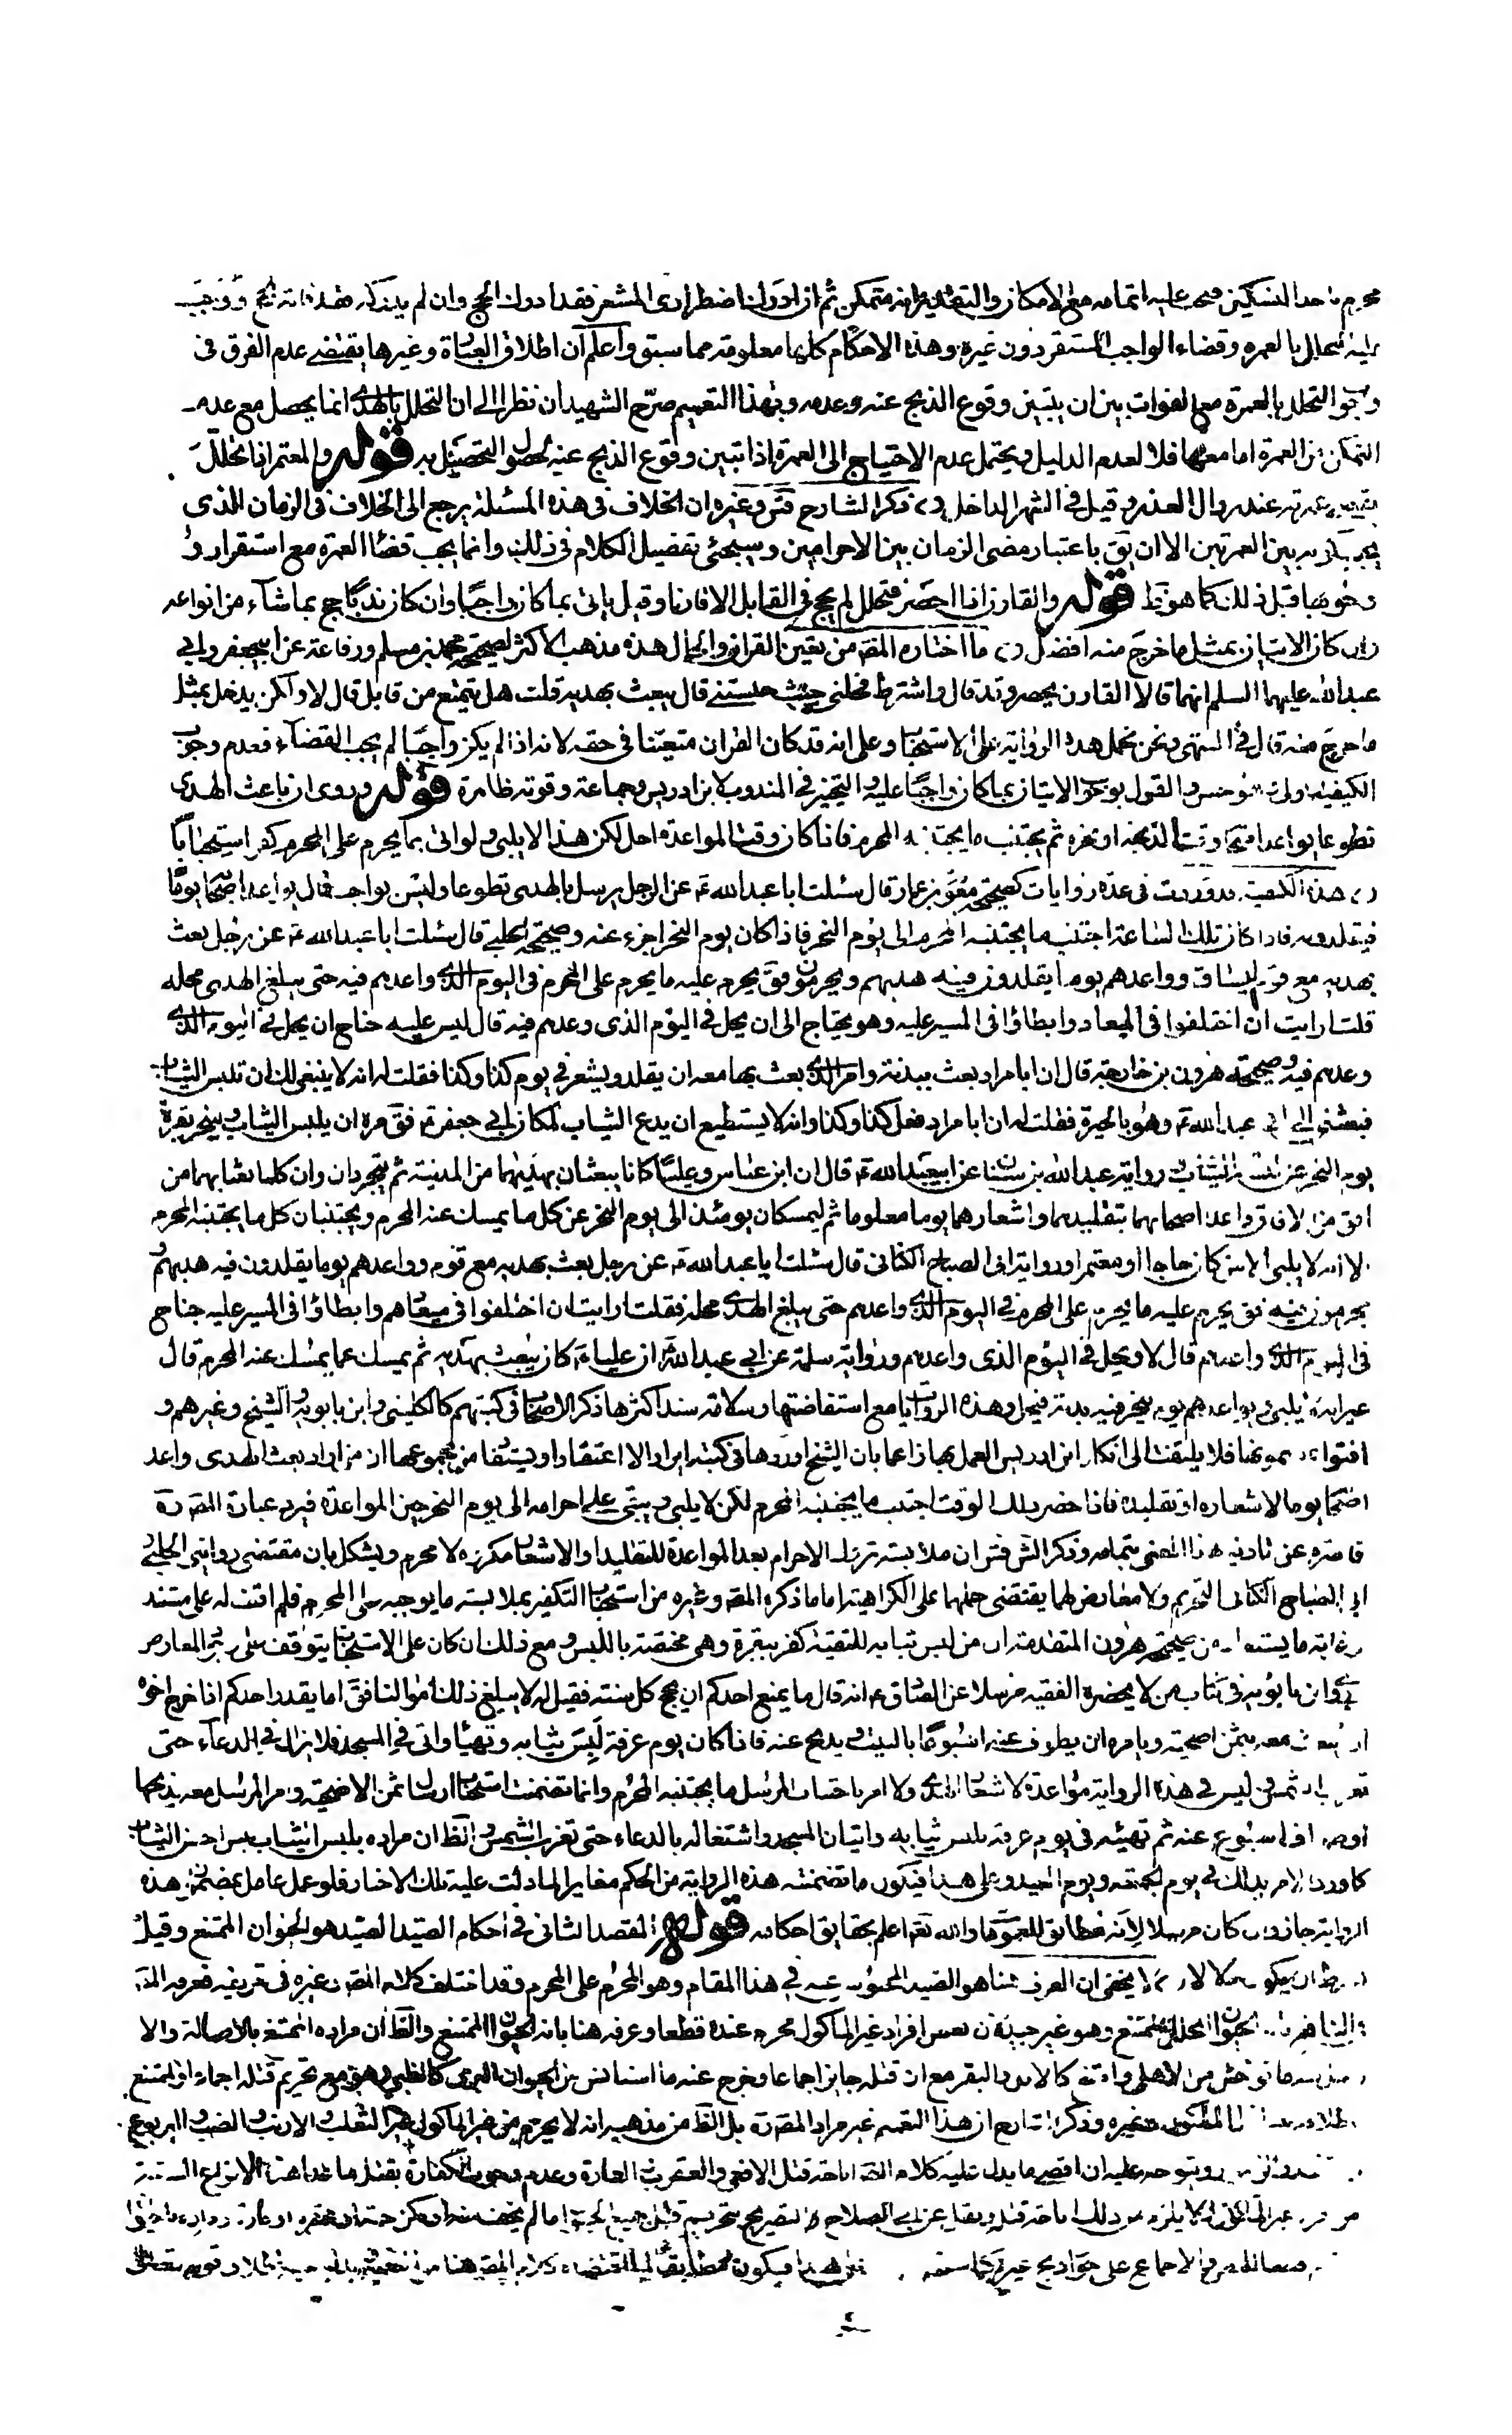 محرم باحد النسكين فيجب عليه اتمامه مع الامكان والتقدير انه متمكن ثم ان ادرك اضطراري المشعر فقد ادرك الحج وان لم يدركه فقد فاته الحج ووجب
عليه التحلل بالعمره وقضاء الواجب المستقر دون غيره وهذه الاحكام كلها معلومة مما سبق واعلم ان اطلاق العبارة وغيرها يقتضي عدم الفرق في
وجوب التحلل بالعمرة مع الفوات بين ان يتبين وقوع الذبح عنه وعدمه وبهذا التعميم صرّح الشهيدان نظرا الى ان التحلل بالهدي انما يحصل مع عدم
التمكن من العمرة اما معها فلا لعدم الدليل ويحتمل عدم الاحتياج الى العمرة اذا تبين وقوع الذبح عنه لحصول التحلل به قوله والمعتمر اذا تحلل
يقضي عمرته عند زوال العذر وقيل في الشهر الداخل ذكر الشارح قدس وغيره ان الخلاف في هذه المسئلة يرجع الى الخلاف في الزمان الذي
يجب كونه بين العمرتين الا ان يق باعتبار مضي الزمان بين الاحرامين وسيجئ تفصيل الكلام في ذلك وانما يجب قضاء العمرة مع استقرار
وجوبها قبل ذلك كما هو ظ قوله والقارن اذا احصر فتحلل لم يحج في القابل الا قارنا وقيل ياتى بما كان واجبا وان كان ندبا حج بما شآء من انواعه
وان كان الاتيان بمثل ما خرج منه افضل ما اختاره المصّ من تعين القران والحال هذه مذهب الاكثر لصحيحة محمد بن مسلم ورفاعة عن ابيجعفر وابي
عبد الله عليهما السلم انهما قالا القارن يحصر وقد قال واشترط فحلني حيث حبستني قال يبعث بهديه قلت هل يتمتع من قابل قال لا ولكن يدخل بمثل
ما خرج منه قال في المنتهى ونحن نحمل هذه الرواية على الاستحباب وعلى انه قد كان القران متعينا في حقه لانه اذا لم يكن واجبا لم يجب القضآء فعدم وجوب
الكيفية اولى وهو حسن والقول بوجوب الاتيان بما كان واجبا عليه والتخيير في المندوب لابن ادريس وجماعة وقوته ظاهرة قوله وروى ان باعث الهدى
تطوعا يواعد اصحابه وقتا لذبحه او نحره ثم يجتنب ما يجتنبه المحرم فاذا كان وقت المواعدة احل لكن هذا لا يلبي ولو اتى بما يحرم على المحرم كفر استحبابا
هذه الكيفية قد وردت في عدة روايات كصحيحة معوية بن عمار قال سئلت ابا عبد الله ع عن الرجل يرسل بالهدى تطوعا وليس بواجب قال يواعد اصحابه يوما
فيقلدونه فاذا كان تلك الساعة اجتنب ما يجتنبه المحرم الى يوم النحر فاذا كان يوم النحر اجزء عنه وصحيحة الحلبي قال سئلت ابا عبد الله ع عن رجل بعث
بهديه مع قوم يساق وواعدهم يوما يقلدون فيه هديهم ويحرمون فق يحرم عليه ما يحرم على المحرم في اليوم الذي واعدهم فيه حتى يبلغ الهدى محله
قلت ارايت ان اختلفوا في الميعاد وابطاؤا في المسير عليه وهو يحتاج الى ان يحل في اليوم الذي وعدهم فيه قال ليس عليه جناح ان يحل في اليوم الذي
وعدهم فيه وصحيحة هرون بن خارجة قال ان ابا مراد بعث ببدنة وامر الذي بعث بها معه ان يقلد ويشعر في يوم كذا وكذا فقلت له انه لا ينبغي لك ان تلبس الثياب
فبعثني الى ابي عبد الله ع وهو بالحيرة فقلت له ان ابا مراد فعل كذا وكذا وانه لا يستطيع ان يدع الثياب لمكان ابي جعفر فق مره ان يلبس الثياب وينحر بقرة
يوم النحر عن لبسه الثياب رواية عبد الله بن سنان عن ابيعبد الله ع قال ان ابن عباس وعليا كانا يبعثان بهديهما من المدينة ثم يتجردان وان كلما بعثا بهما من
افق من الافاق واعدا اصحابهما بتقليدهما واشعارهما يوما معلوما ثم ليمسكان يومئذ الى يوم النحر عن كل ما يمسك عنه المحرم ويجتنبان كل ما يجتنبه المحرم
الا انه لا يلبي الا من كان حاجا او معتمرا ورواية ابى الصباح الكناني قال سئلت ابا عبد الله ع عن رجل بعث بهديه مع قوم وواعدهم يوما يقلدون فيه هديهم
ويحرمون فيه فق يحرم عليه ما يحرم على المحرم في اليوم الذي واعدهم حتى يبلغ الهدى محله فقلت ارايت ان اختلفوا في ميعادهم وابطاؤا في المسير عليه جناح
في اليوم الذي واعدهم قال لا ويحل في اليوم الذي واعدهم ورواية سلمة عن ابي عبد الله ع ان عليا ع كان يبعث بهديه ثم يمسك عما يمسك عنه المحرم قال
غير انه لا يلبي ويواعدهم يوم ينحر فيه بدنة فيحل وهذه الروايات مع استفاضتها وسلامة سند اكثرها ذكر الاصحاب في كتبهم كالكليني وابن بابويه والشيخ وغيرهم و
افتوا بمضمونها فلا يلتفت الى انكار ابن ادريس العمل بها زاعما بان الشيخ اوردها في كتبه ايرادا لا اعتقادا ويستفاد من مجموعها ان من اراد بعث الهدى واعد
اصحابه يوما لاشعاره او تقليده فاذا حضر ذلك الوقت اجتنب ما يجتنبه المحرم لكن لا يلبي ويبقى على احرامه الى يوم النحر حين المواعدة فيه وعبارة المصّ ره
قاصرة عن تادية هذا المعنى بتمامه وذكر الش قدس ان ملابسة تروك الاحرام بعد المواعدة للتقليد او الاشعار مكروه لا محرم ويشكل بان مقتضى روايتي الحلبي
وابي الصباح الكناني التحريم ولا معارض لهما يقتضي حملهما على الكراهية اما ما ذكره المصّ وغيره من استحباب التكفير بملابسة ما يوجبه على المحرم فلم اقف له على مستند
وغاية ما يستفاد من صحيحة هرون المتقدمة ان من لبس ثيابه للتقية كفر ببقرة وهي مختصة باللبس ومع ذلك ان كان على الاستحباب يتوقف على وجود المعارض
وان بابويه في كتاب من لا يحضره الفقيه مرسلا عن الصادق ع انه قال ما يمنع احدكم ان يحج كل سنة فقيل له لا يبلغ ذلك اموالنا فق اما يقدر احدكم اذا خرج اخوه
ان يبعث معه بثمن اضحية ويامره ان يطوف عنه اسبوعا بالبيت ويذبح عنه فاذا كان يوم عرفة لبس ثيابه وتهيا واتى في المسجد فلا يزال في الدعآء حتى
تغرب الشمس ليس في هذه الرواية مواعدة لاشعار الهدي ولا امر باجتناب المرسل ما يجتنبه المحرم وانما تضمنت استحباب ارسال ثمن الاضحية وامر المرسل معه بذبحها
او طواف اسبوع عنه ثم تهيئه في يوم عرفة بلبس ثيابه واتيان المسجد واشتغاله بالدعاء حتى تغرب الشمس والظ ان مراده بلبس الثياب لبس احسن الثياب
كما ورد الامر بذلك في يوم الجمعة ويوم العيد وعلى هذا فيكون ما تضمنته هذه الرواية من الحكم مغايرا لما دلت عليه تلك الاخبار فلو عمل عامل بمضمون هذه
الرواية جاز وان كان مرسلا لانه مطابق للعمومات والله تعا اعلم بحقايق احكامه قوله المقصد الثانى في احكام الصيد الصيد هو الحيوان الممتنع وقيل
يشترط ان يكون حلالا لا يخفى ان الغرض هنا هو الصيد المبحوث عنه في هذا المقام وهو المحرم على المحرم وقد اختلف كلام المصّ وغيره في تعريفه فعرفه المصّ
في النافع بانه الحيوان المحلل الممتنع وهو غير جيد فان بعض افراد غير الماكول محرم عنده قطعا وعرفه هنا بانه الحيوان الممتنع والظ ان مراده الممتنع بالاصالة والا
لدخل فيه ما توحش من الاهلى وامتنع كالابل والبقر مع ان قتله جايز اجماعا وخرج عنه ما استانس من الحيوان البري كالظبي وهو مع تحريم قتله اجماعا الممتنع
المفهوم وغيره وذكر الشارح ان هذا التعميم غير مراد المصّ ره بل الظ من مذهبه انه لا يحرم من غير الماكول غير الثعلب والارنب والضب واليربوع
ويتوجه عليه ان اقصى ما يدل عليه كلام المصّ اباحة قتل الافعى والعقرب والفارة وعدم وجوب الكفارة بقتل ما عدا هذه الانواع
لا يلزم من ذلك اباحة قتله ونقل عن ابي الصلاح التصريح بتحريم قتل جميع الحيوان ما لم يخف منه او كان حية او عقربا او فارة
الاجماع على جواز ذبح غير فيكون مطابقا